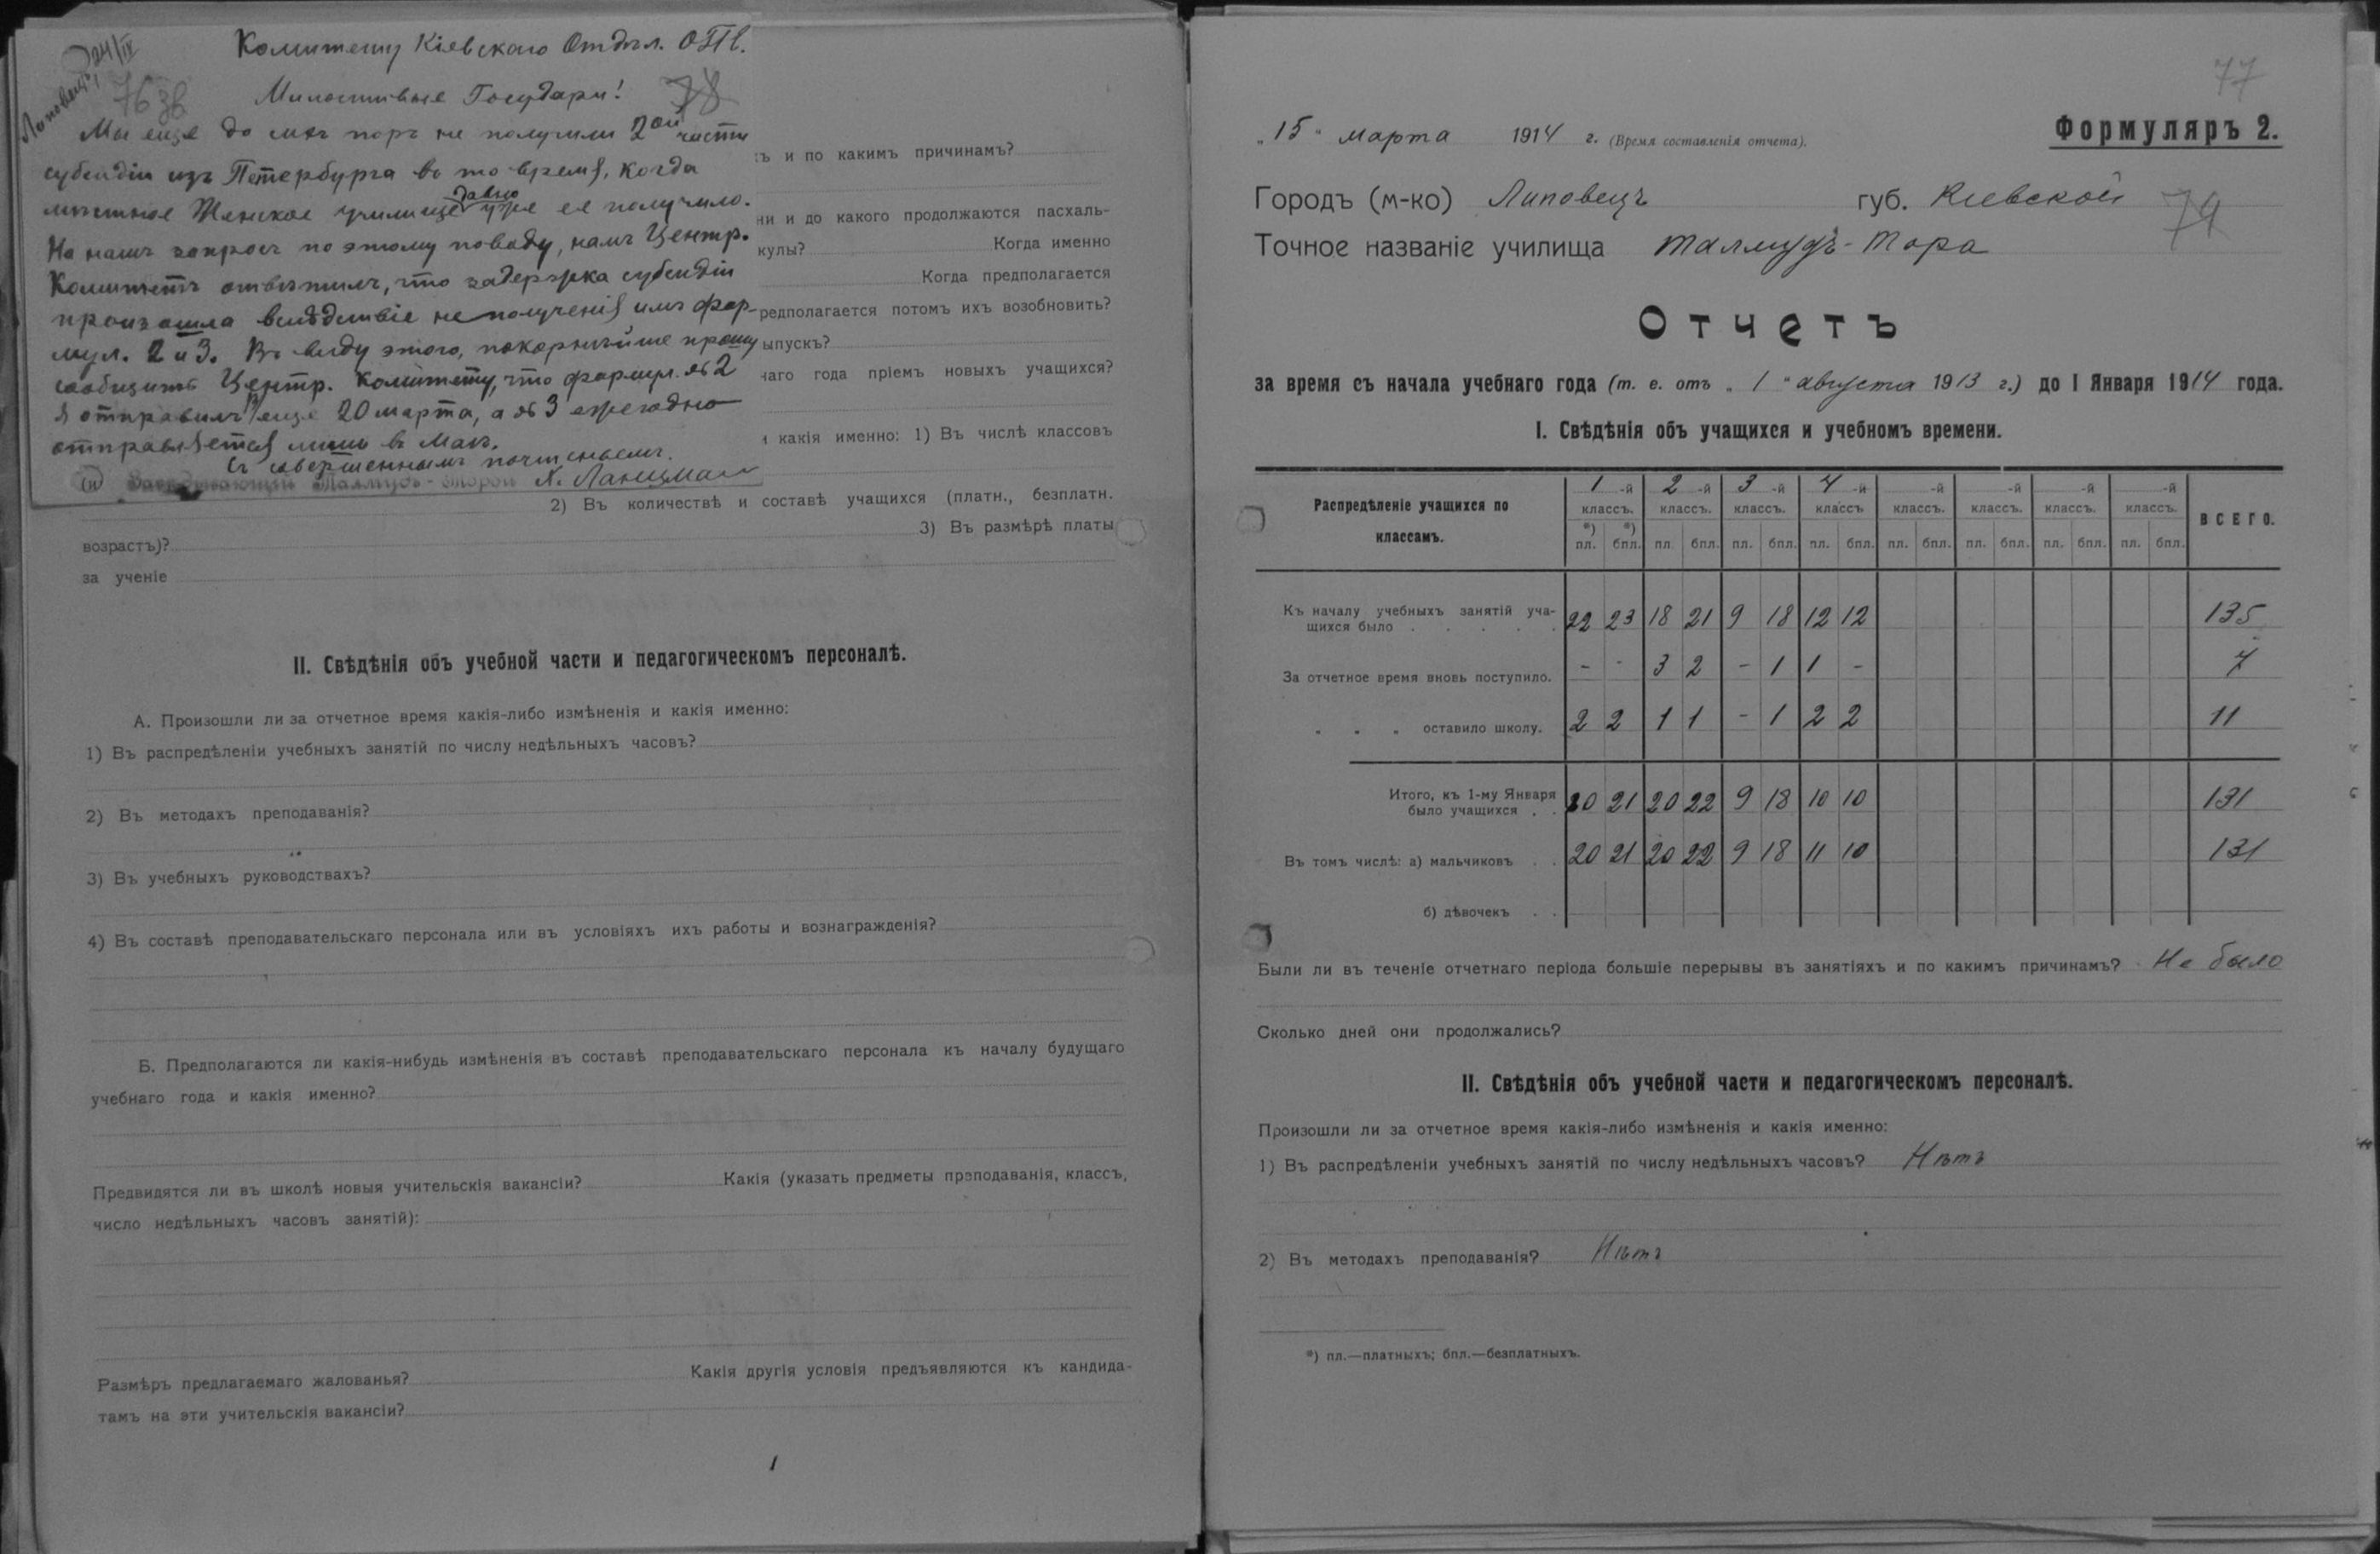 24/IX
Липовецъ,
Комитету Кіевскаго Отдѣл. ОПЕ.
Милостивые Государи!
78
Мы еще до сихъ поръ не получили 2ой части
субсидіи изъ Петербурга въ то время, когда
мѣстное Женское училище давно уже ее получило.
На нашъ запросъ по этому поводу, намъ Центр.
Комитетъ отвѣтилъ, что задержка субсидіи
произошла вслѣдствіе неполученія имъ фор-
мул. 2 и 3. Въ виду этого, покорнѣйше прошу
сообщить Центр. Комитету, что формул. № 2
я отправилъ еще 20 марта, а № 3 ежегодно
отправляется лишь въ Маѣ.
Съ совершеннымъ почтеніемъ.
Завѣдывающій Талмудъ-Торой
ъ и по какимъ причинамъ?
ни и до какого продолжаются пасхаль-
кулы? Когда именно
Когда предполагается
редполагается потомъ ихъ возобновить?
ыпускъ?
наго года пріемъ новыхъ учащихся?
и какія именно: 1) Въ числѣ классовъ
2) Въ количествѣ и составѣ учащихся (платн., безплатн.
возрастъ)? 3) Въ размѣрѣ платы
за ученіе
II. Свѣдѣнія объ учебной части и педагогическомъ персоналѣ.
А. Произошли ли за отчетное время какія-либо измѣненія и какія именно:
1) Въ распредѣленіи учебныхъ занятій по числу недѣльныхъ часовъ?
2) Въ методахъ преподаванія?
3) Въ учебныхъ руководствахъ?
4) Въ составѣ преподавательскаго персонала или въ условіяхъ ихъ работы и вознагражденія?
Б. Предполагаются ли какія-нибудь измѣненія въ составѣ преподавательскаго персонала къ началу будущаго
учебнаго года и какія именно?
Предвидятся ли въ школѣ новыя учительскія вакансіи? Какія (указать предметы преподаванія, классъ,
число недѣльныхъ часовъ занятій):
Размѣръ предлагаемаго жалованья? Какія другія условія предъявляются къ кандида-
тамъ на эти учительскія вакансіи?
77
„15" марта 1914 г. (Время составленія отчета).
Формуляръ 2.
Городъ (м-ко) Липовецъ губ. Кіевской
79
Точное названіе училища Талмудъ-Тора
Отчетъ
за время съ начала учебнаго года (т. е. отъ „1" августа 1913 г.) до 1 Января 1914 года.
I. Свѣдѣнія объ учащихся и учебномъ времени.
Распредѣленіе учащихся по классамъ. 1-й классъ. 2-й классъ. 3-й классъ. 4-й классъ -й классъ. -й классъ. -й классъ. -й классъ. ВСЕГО.
*) пл. *) бпл. пл. бпл. пл. бпл. пл. бпл. пл. бпл. пл. бпл. пл. бпл. пл. бпл.
Къ началу учебныхъ занятій уча-
щихся было 22 23 18 21 9 18 12 12 135
За отчетное время вновь поступило. - - 3 2 - 1 1 - 7
" " " оставило школу. 2 2 1 1 - 1 2 2 11
Итого, къ 1-му Января
было учащихся 20 21 20 22 9 18 10 10 131
Въ томъ числѣ: а) мальчиковъ 20 21 20 22 9 18 11 10 131
б) дѣвочекъ
Были ли въ теченіе отчетнаго періода большіе перерывы въ занятіяхъ и по какимъ причинамъ? Не было
Сколько дней они продолжались?
II. Свѣдѣнія объ учебной части и педагогическомъ персоналѣ.
Произошли ли за отчетное время какія-либо измѣненія и какія именно:
1) Въ распредѣленіи учебныхъ занятій по числу недѣльныхъ часовъ? Нѣтъ
2) Въ методахъ преподаванія? Нѣтъ
*) пл.—платныхъ; бпл.—безплатныхъ.